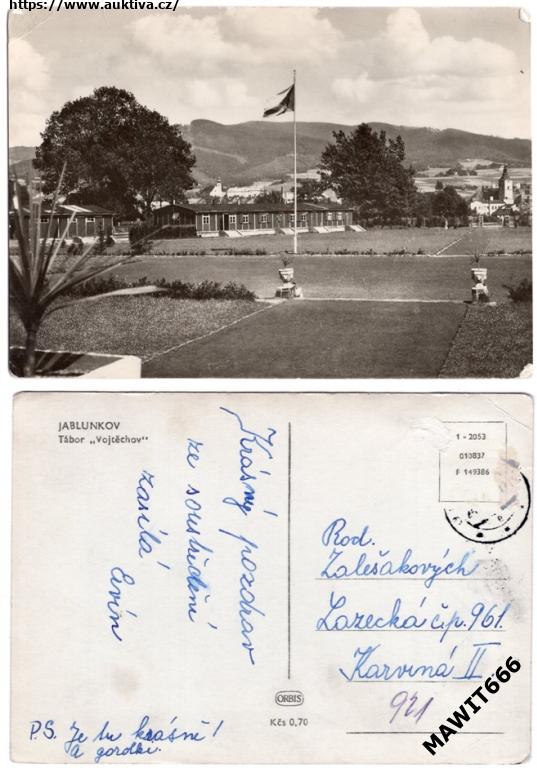 https://www.auktiva.cz/
JABLUNKOV
Tábor „Vojtěchov"
Krásný pozdrav
ze soustředění
zasílá
Ervín
P.S. Je tu krásně!
a
1 - 2053
010837
F 149386
Rod.
Zalešákových
Lazecká čp. 961
Karviná II
921
ORBIS
Kčs 0,70
MAWIT666